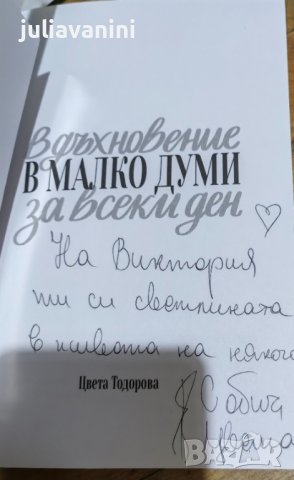 juliavanini
Вдъхновение
В МАЛКО ДУМИ
за всеки ден
На Виктория
ти си светлината
в живота на някого
Цвета Тодорова
С обич
Цвета
BAZAR